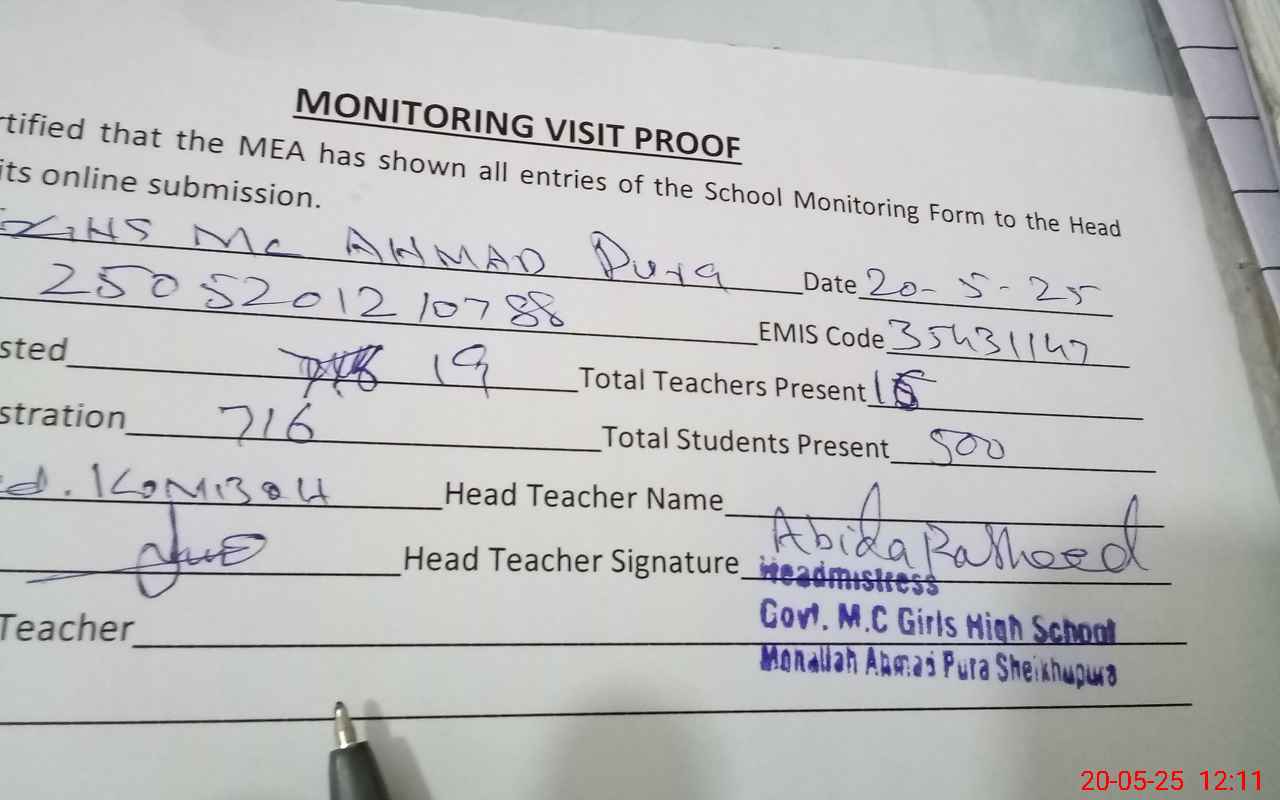 MONITORING VISIT PROOF
rtified that the MEA has shown all entries of the School Monitoring Form to the Head
its online submission.
GHS MC AHMAD Pura Date 20-5-25
2505201210788 EMIS Code 35431147
sted 19 Total Teachers Present
stration 716 Total Students Present 500
Head Teacher Name
Abida Rasheed
Head Teacher Signature
Headmistress
Govt. M.C Girls High School
Teacher
Mohallah Ahmad Pura Sheikhupura
20-05-25 12:11